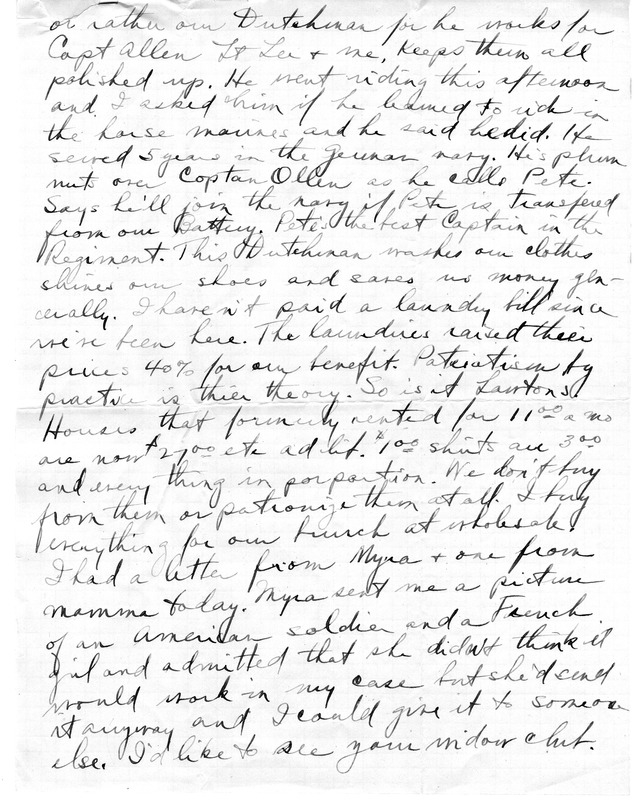 or rather our Dutchman for he works for
Capt Allen Lt Lee + me, keeps them all
polished up. He went riding this afternoon
and I asked him if he learned to ride in
the horse marines and he said he did. He
served 5 years in the German navy. He's plum
nuts over Coptan Ollen as he calls Pete.
Says he'll join the navy if Pete is transfered
from our Battery. Pete's the best Captain in the
Regiment. This Dutchman washes our clothes
shines our shoes and saves us money gen-
erally. I haven't paid a laundry bill since
we've been here. The laundries raised their
prices 40% for our benefit. Patriotism by
practice is thier theory. So is it Lawtons.
Houses that formerly rented for 11 00 a mo
are now $27.00 etc ad lib. $1 00 shirts are 3 00
and every thing in porportion. We don't buy
from them or patronize them at all. I buy
everything for our bunch at wholesale.
I had a letter from Myra + one from
mamma today. Myra sent me a picture
of an American soldier and a French
girl and admitted that she didn't think it
would work in my case but she'd send
it anyway and I could give it to someone
else. I'd like to see your widow club.